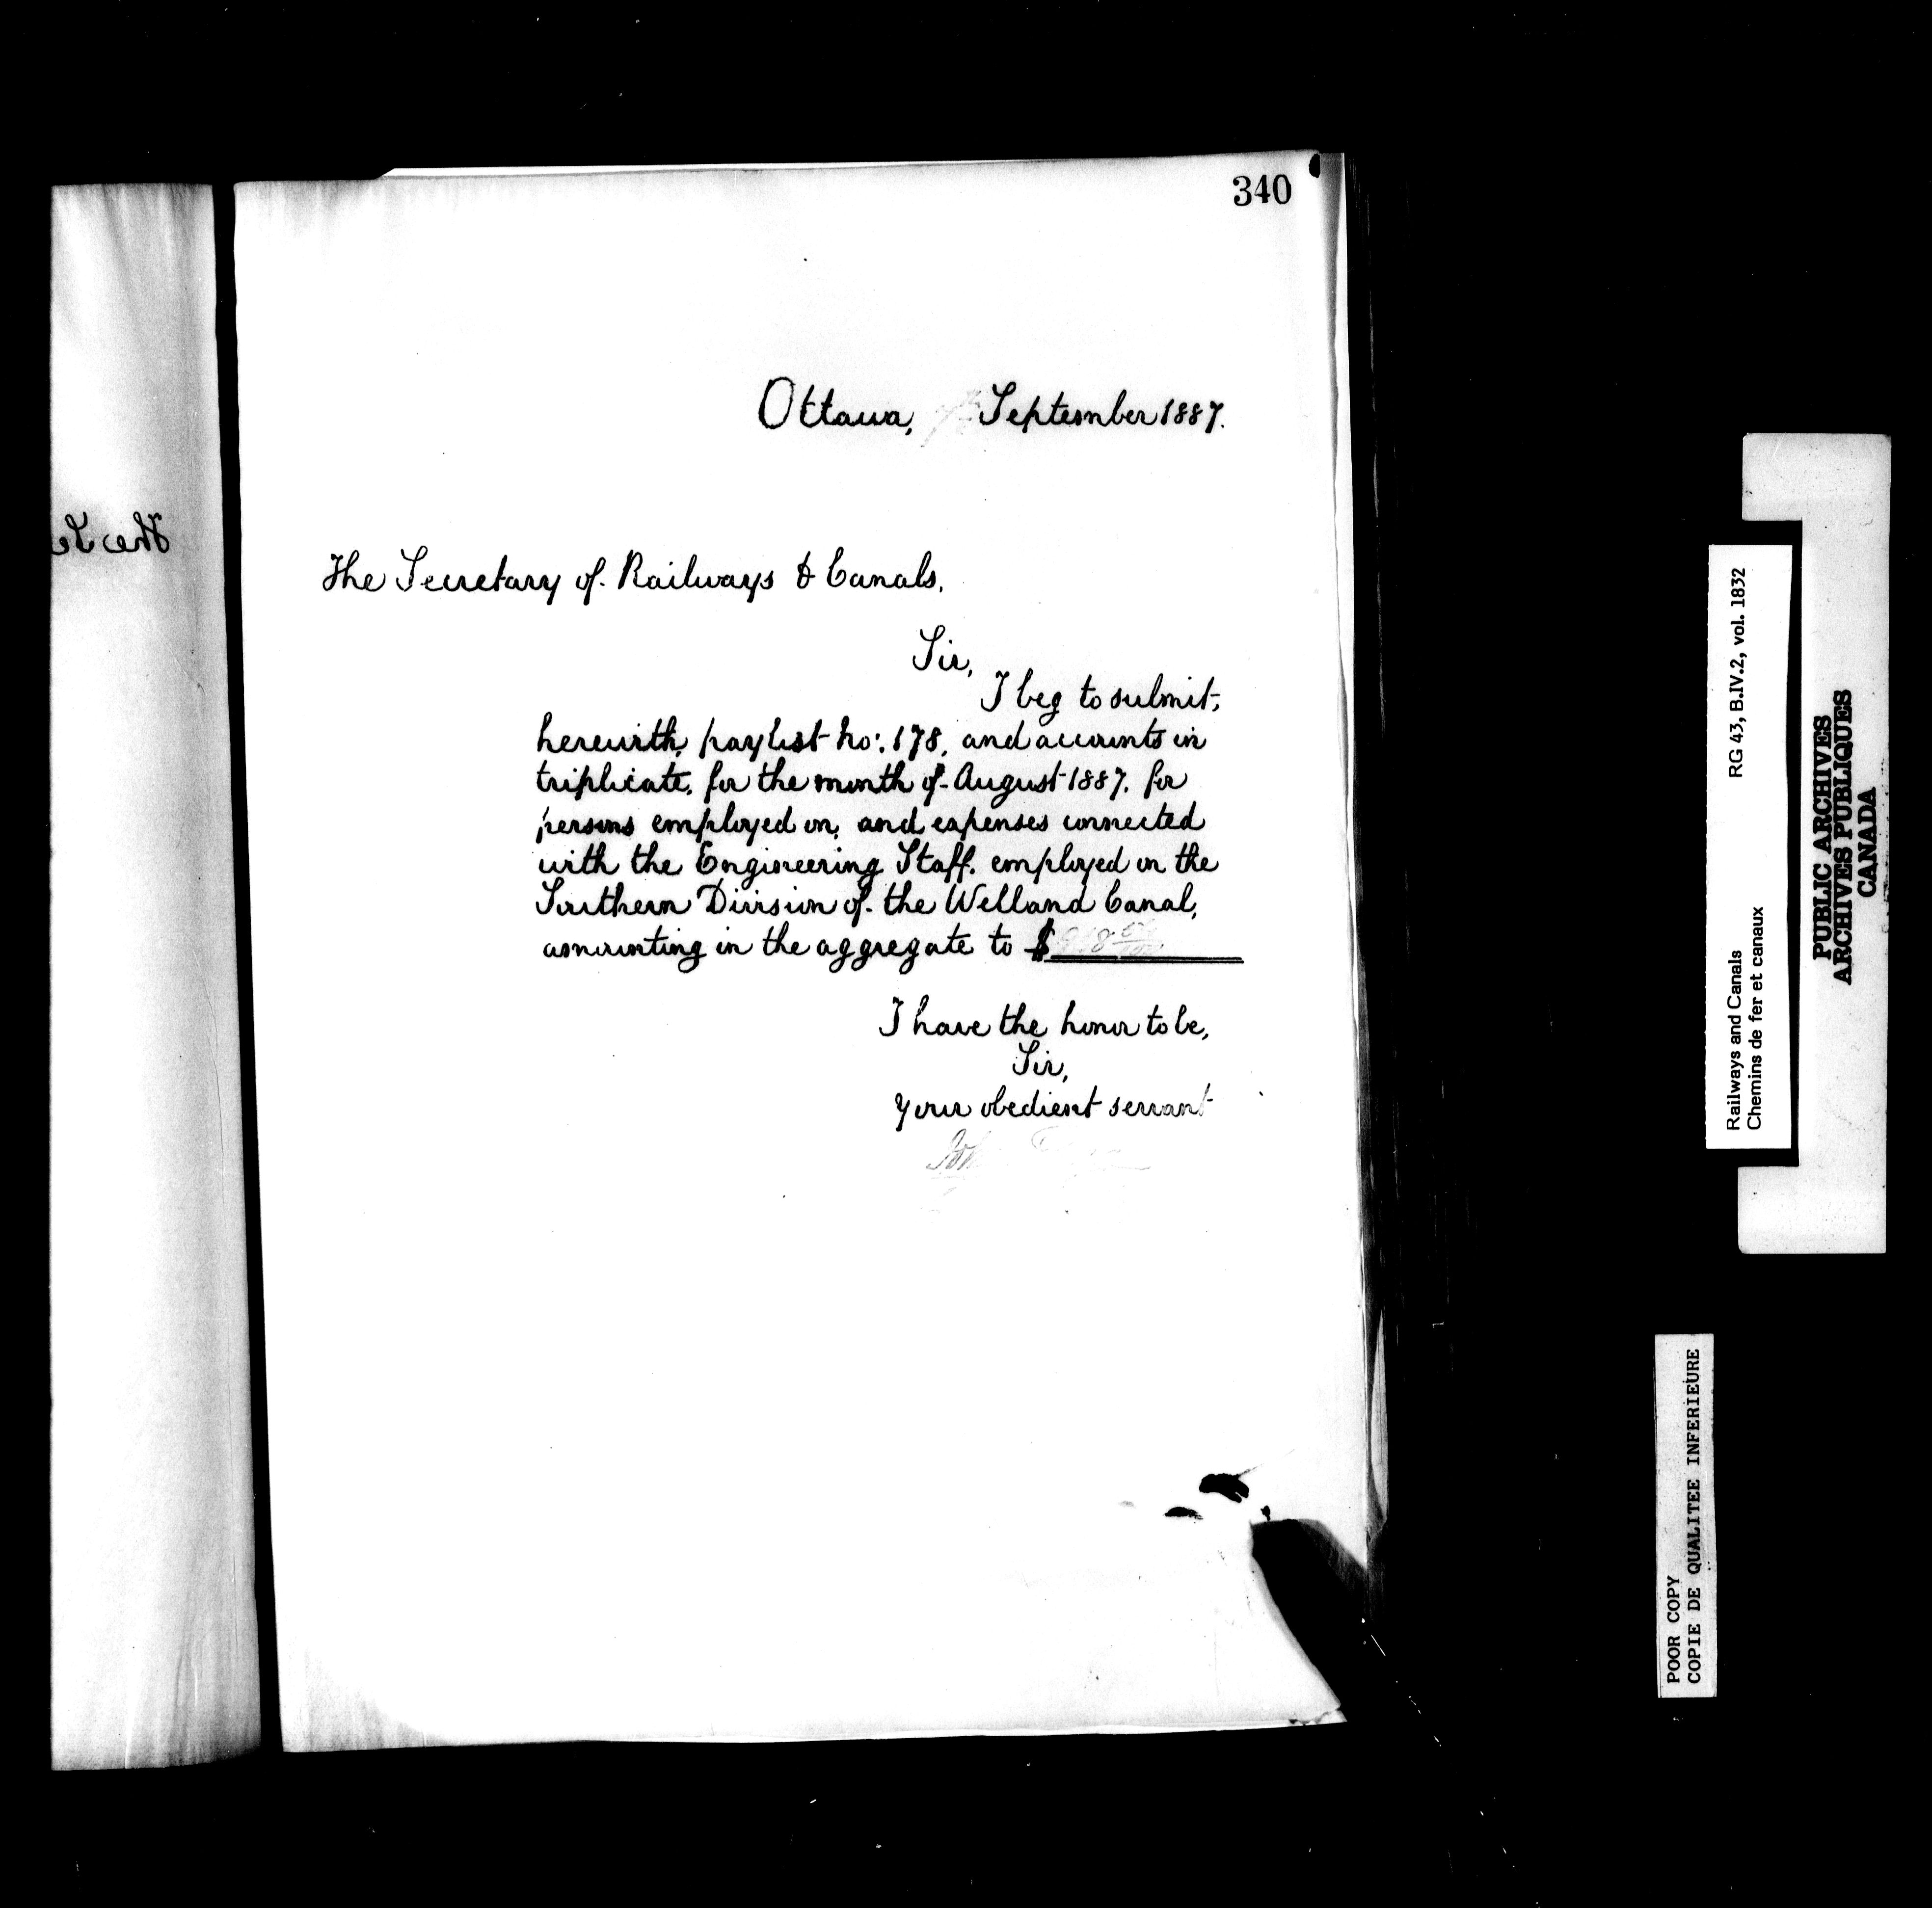 340
Ottawa, September 1887.
The Secretary of Railways & Canals.
Sir,
I beg to submit,
herewith, paylist no: 178, and accounts in
triplicate, for the month of August 1887, for
persons employed on, and expenses connected
with the Engineering Staff, employed on the
Southern Division of the Welland Canal,
amounting in the aggregate to $
I have the honor to be,
Sir,
Your obedient servant
John
Railways and Canals RG 43, B.IV.2, vol. 1832
Chemins de fer et canaux
PUBLIC ARCHIVES
ARCHIVES PUBLIQUES
CANADA
POOR COPY
COPIE DE QUALITEE INFERIEURE